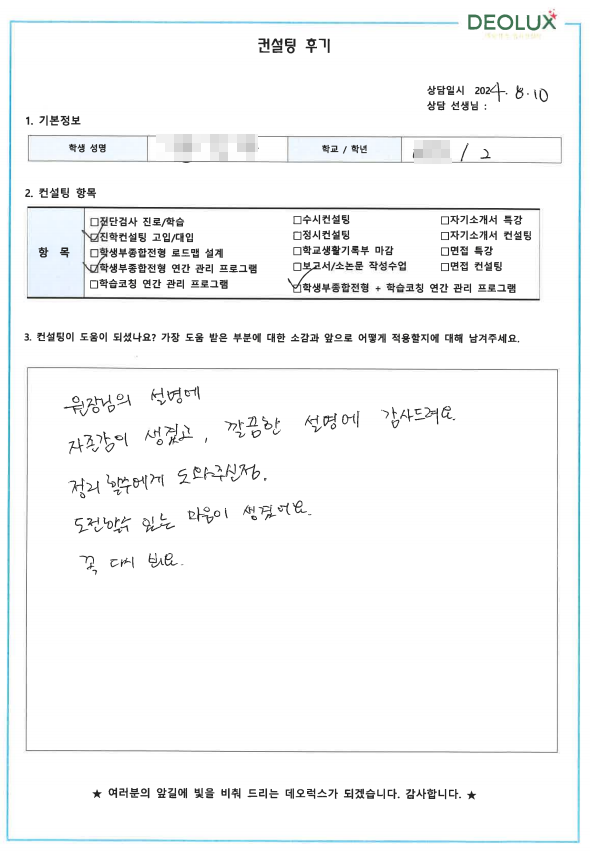 DEOLUX
컨설팅 후기
상담일시 2024.8.10
상담 선생님 :
1. 기본정보
학생 성명
학교 / 학년 / 2
2. 컨설팅 항목
항 목
□진단검사 진로/학습 □수시컨설팅 □자기소개서 특강
□진학컨설팅 고입/대입 □정시컨설팅 □자기소개서 컨설팅
□학생부종합전형 로드맵 설계 □학교생활기록부 마감 □면접 특강
□학생부종합전형 연간 관리 프로그램 □보고서/소논문 작성수업 □면접 컨설팅
□학습코칭 연간 관리 프로그램 □학생부종합전형 + 학습코칭 연간 관리 프로그램
3. 컨설팅이 도움이 되셨나요? 가장 도움 받은 부분에 대한 소감과 앞으로 어떻게 적용할지에 대해 남겨주세요.
원장님의 설명에
자존감이 생겼고, 깔끔한 설명에 감사드려요.
정리 할수에게 도와주신점.
도전할수 있는 마음이 생겼어요.
꼭 다시 봬요.
★ 여러분의 앞길에 빛을 비춰 드리는 데오럭스가 되겠습니다. 감사합니다. ★